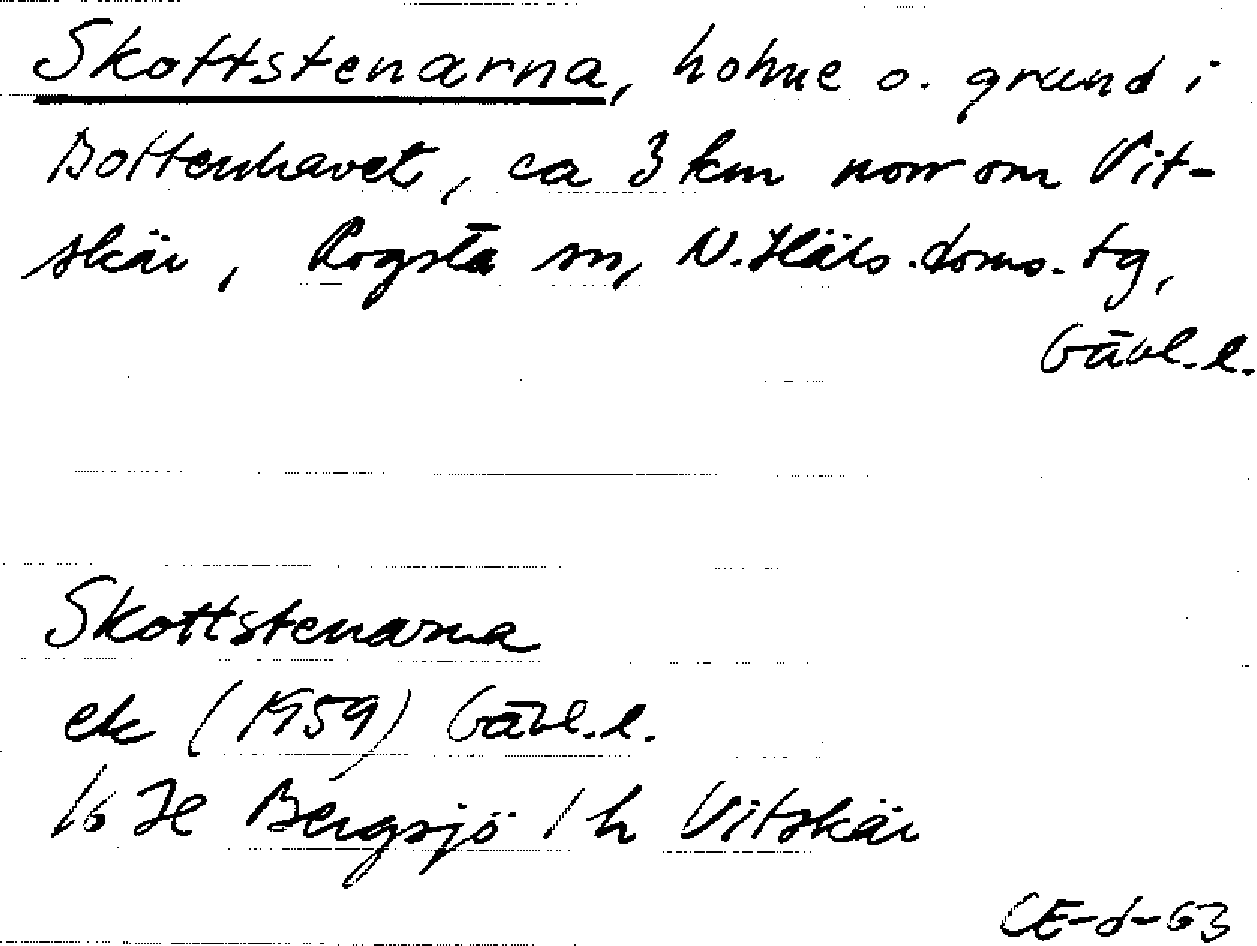 Skottstenarna, holme o. grund i
Bottenhavet, ca 3 km norr om Vit-
skär, Rogsta sn, N.Häls.doms.tg,
Gävl.l.
Skottstenarna
ek (1959) Gävl.l.
16 H Bergsjö 1 h Vitskär
CE-d-63